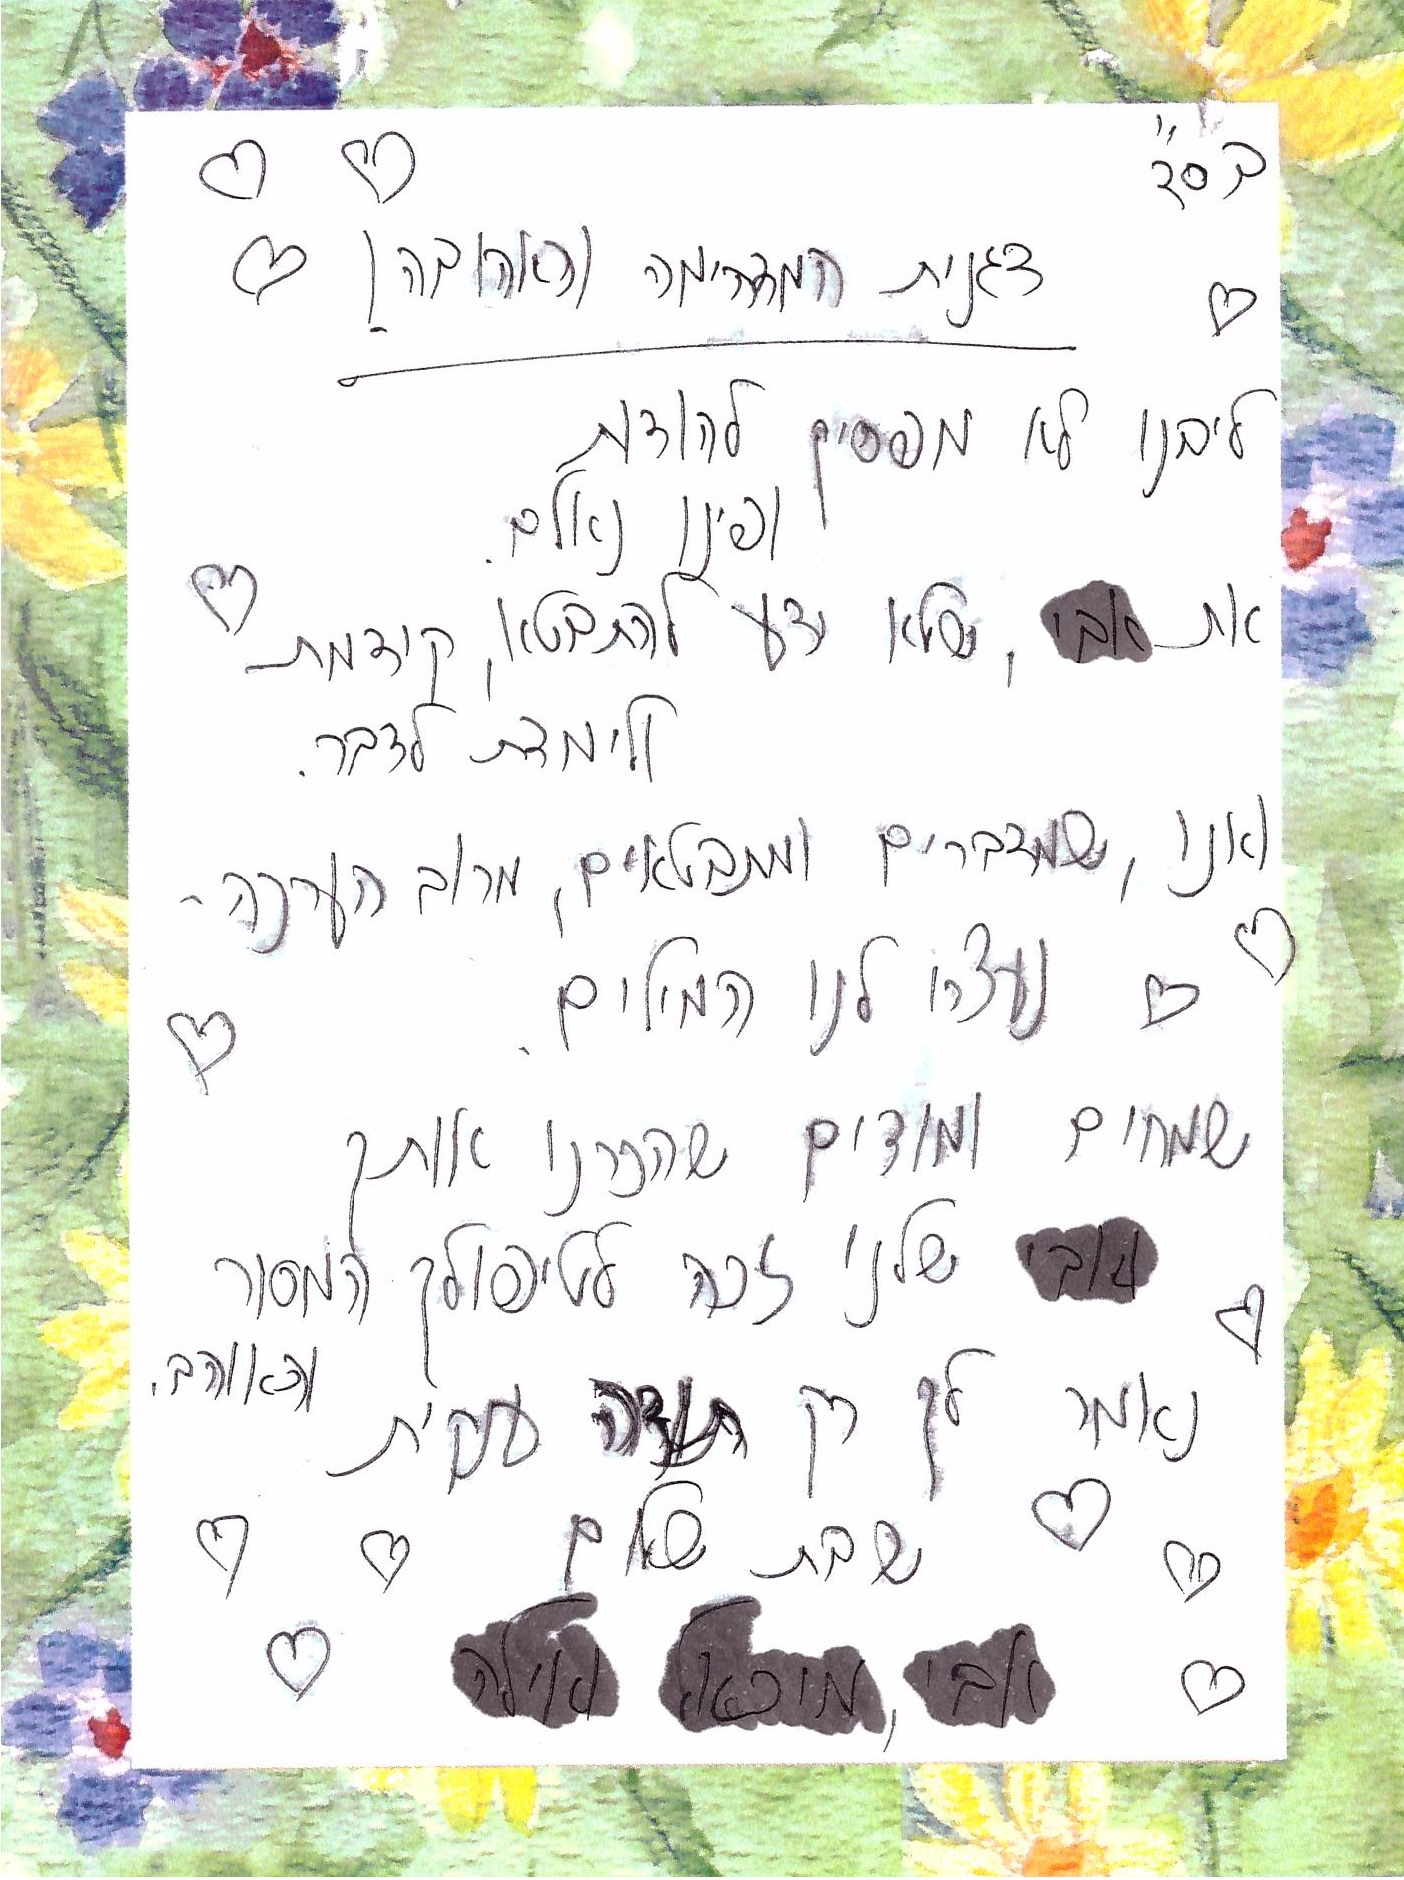 בס"ד
דגנית המדהימה (והאהובה!)
ליבנו לא מפסיק להודות
ופינו נאלם.
את אבי, שלא ידע להתבטא, קידמת
ולימדת לדבר.
ואנו, שמדברים ומתבטאים, מרוב הערכה -
נעצרו לנו המילים.
שמחים ומודים שהכרנו אותך
שלנו זכה לטיפולך המסור
והאוהב.
נאמר לך רק תודה ענקית
שבת שלום